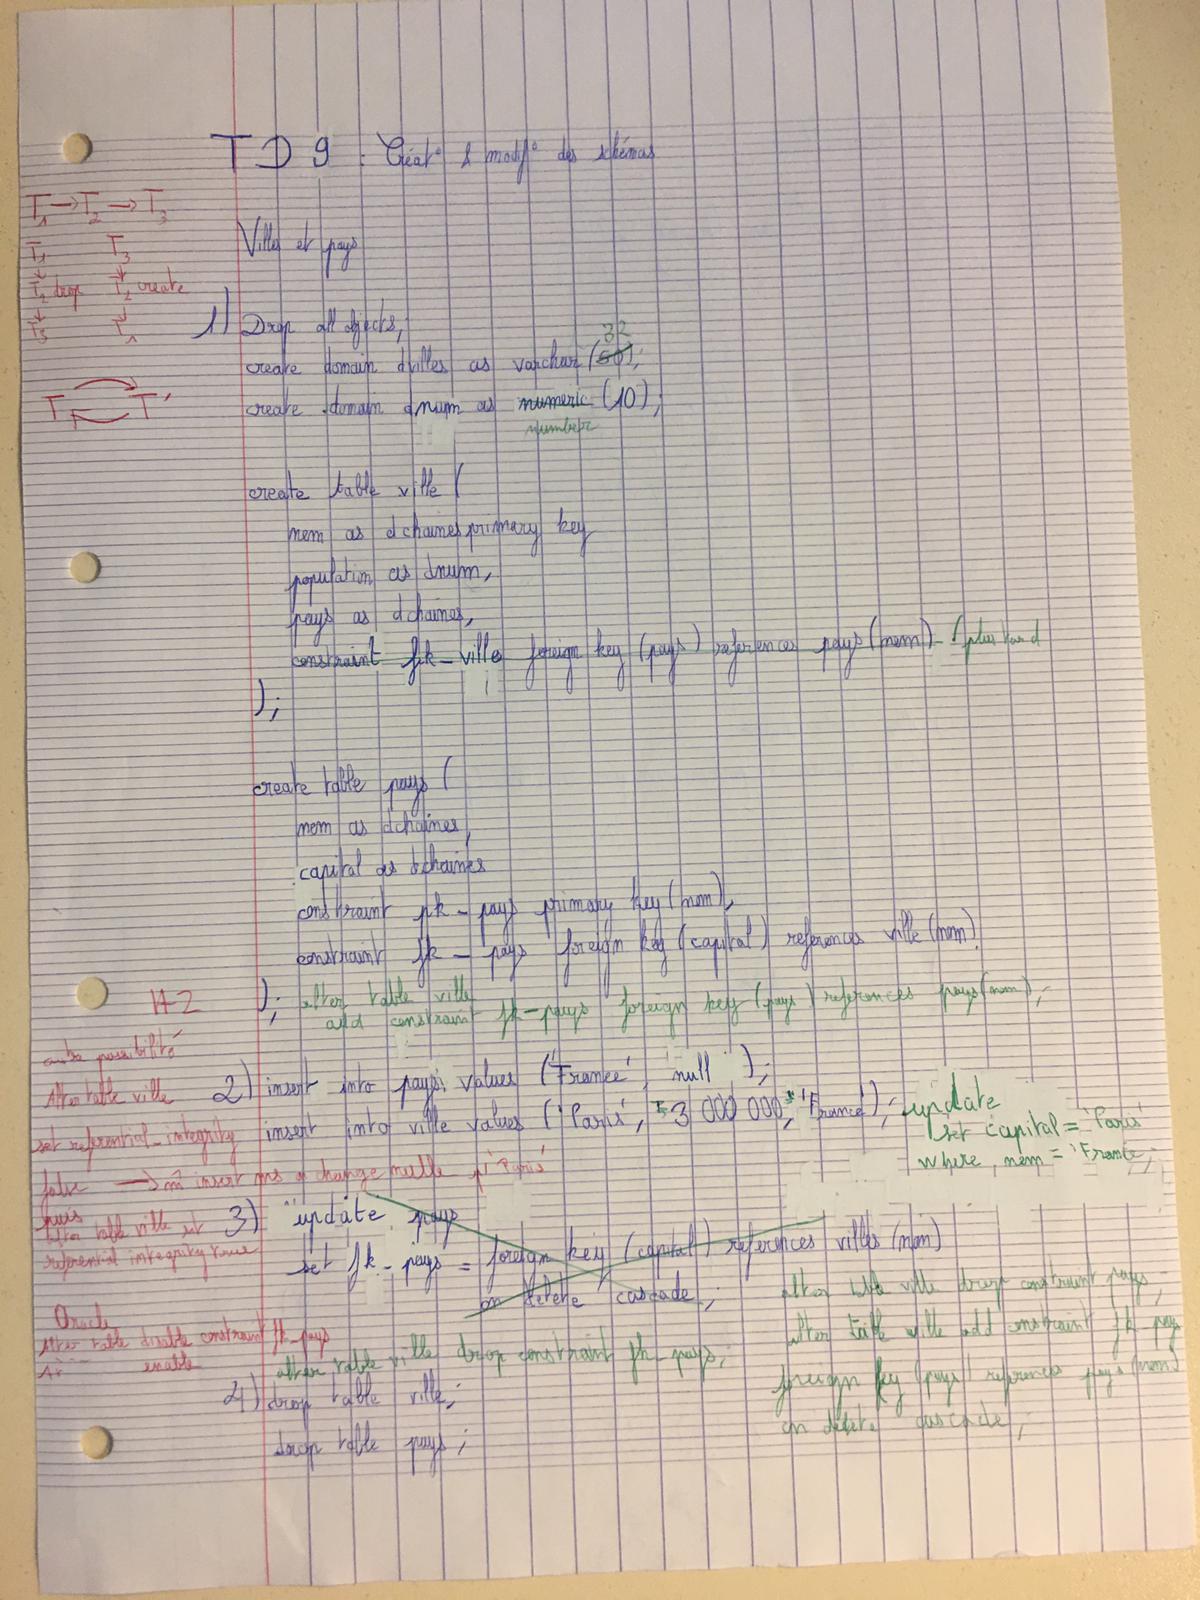 TD9 : Créat° & modif° des schémas
T1 → T2 → T3
T1 T3
↓ ↓
T2 drop T2 create
↓ ↓
T3 T1
T T'
Villes et pays
1) Drop all objects;
create domain dvilles as varchar (50); 32
create domain dnum as numeric (10);
number
create table ville (
nom as dchaines primary key
population as dnum,
pays as dchaines,
constraint fk_ville foreign key (pays) references pays (nom) - plus tard
);
create table pays (
nom as dchaines,
capital as dchaines
constraint pk_pays primary key (nom),
constraint fk_pays foreign key (capital) references ville (nom)
);
alter table ville
add constraint fk_pays foreign key (pays) references pays (nom);
H2
autre possibilité
Alter table ville
set referential_integrity
false → m̂ insert ms on change nulle p/ 'Paris'
puis
alter table ville set
referential integrity true
2) insert into pays values ('France', null);
insert into ville values ('Paris', 3 000 000, 'France');
update
set capital = 'Paris'
where nom = 'France';
3) update pays
set fk_pays = foreign key (capital) references villes (nom)
on delete cascade;
alter table ville drop constraint pays;
alter table ville add constraint fk_pays
foreign key (pays) references pays (nom)
on delete cascade;
Oracle
Alter table disable constraint fk_pays
Al --- enable
alter table ville drop constraint fk_pays;
4) drop table ville;
drop table pays;